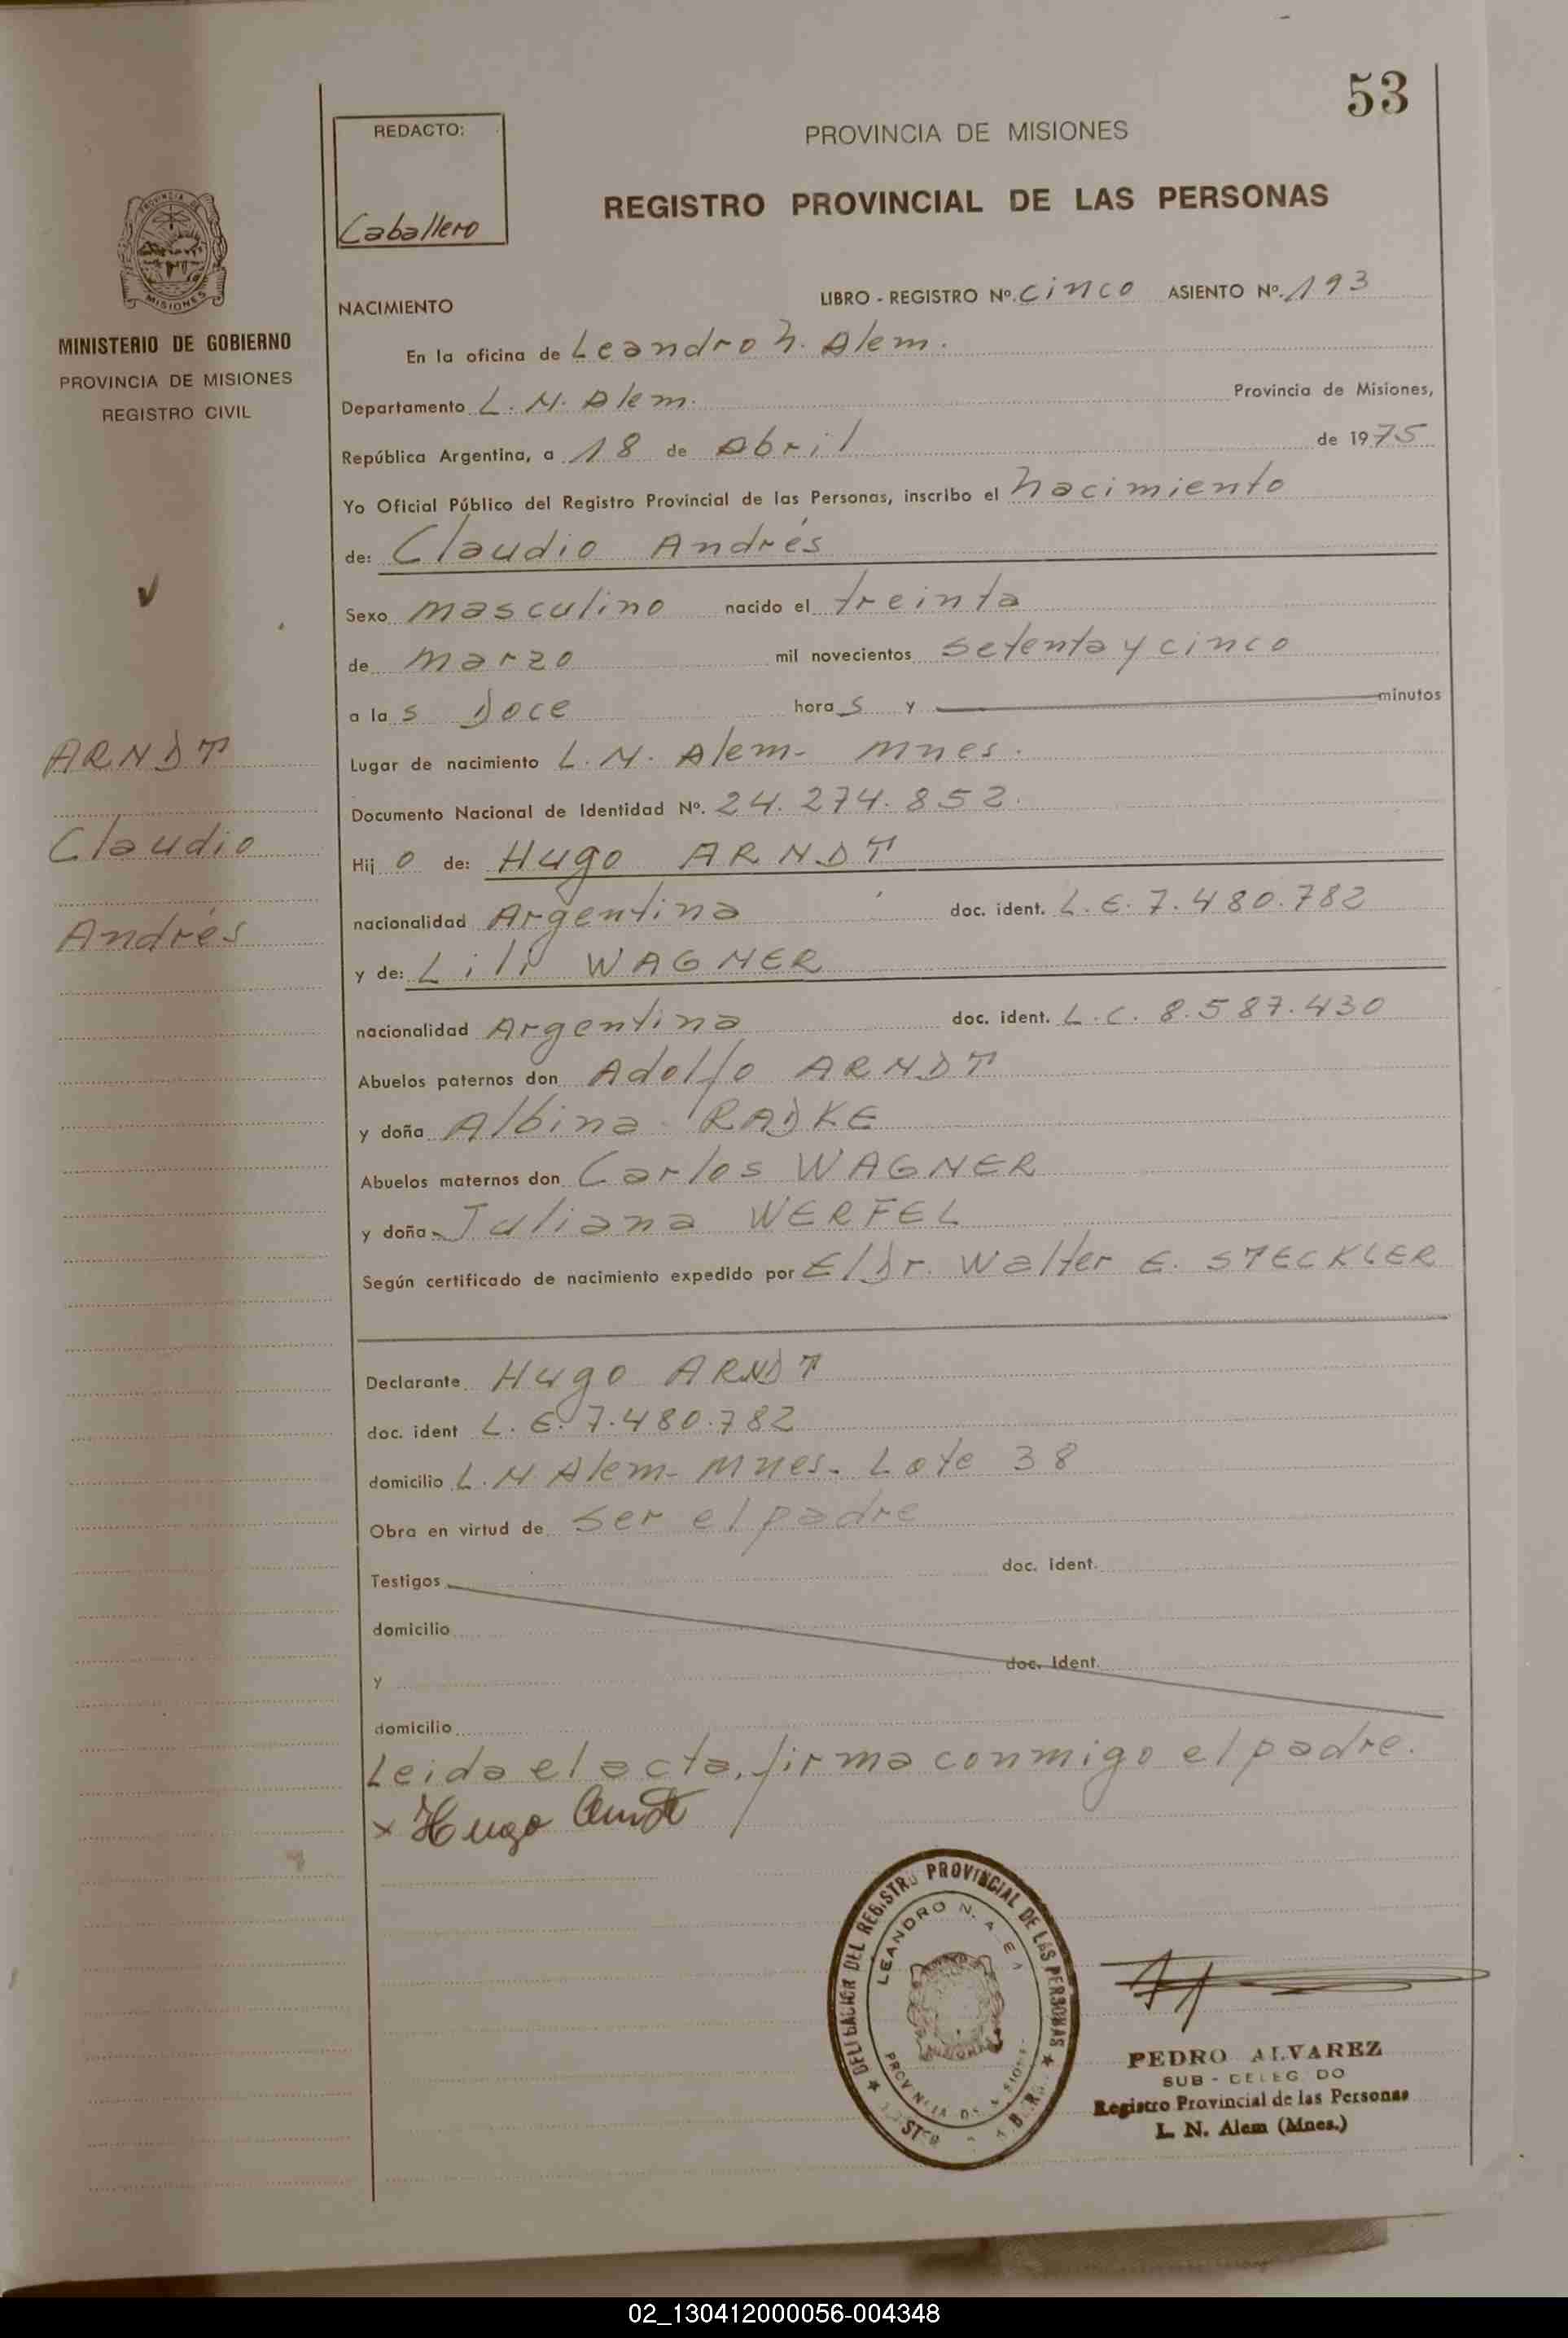 53
REDACTO:
Caballero
PROVINCIA DE MISIONES
REGISTRO PROVINCIAL DE LAS PERSONAS
PROVINCIA DE
MISIONES
MINISTERIO DE GOBIERNO
PROVINCIA DE MISIONES
REGISTRO CIVIL
ARNDT
Claudio
Andrés
NACIMIENTO LIBRO - REGISTRO Nº. cinco ASIENTO Nº. 193
En la oficina de Leandro N. Alem.
Departamento L. N. Alem. Provincia de Misiones,
República Argentina, a 18 de Abril de 1975
Yo Oficial Público del Registro Provincial de las Personas, inscribo el nacimiento
de: Claudio Andrés
Sexo masculino nacido el treinta
de marzo mil novecientos setenta y cinco
a las Doce horas y minutos
Lugar de nacimiento L. N. Alem- Mnes.
Documento Nacional de Identidad Nº. 24.274.852.
Hijo de: Hugo ARNDT
nacionalidad Argentina doc. ident. L.E. 7.480.782
y de: Lili WAGNER
nacionalidad Argentina doc. ident. L.C. 8.587.430
Abuelos paternos don Adolfo ARNDT
y doña Albina RADKE
Abuelos maternos don Carlos WAGNER
y doña Juliana WERFEL
Según certificado de nacimiento expedido por El Dr. Walter E. STECKLER
Declarante Hugo ARNDT
doc. ident L.E. 7.480.782
domicilio L.N Alem- Mnes. Lote 38
Obra en virtud de ser el padre
Testigos doc. ident.
domicilio
y doc. Ident.
domicilio
Leida el acta, firma conmigo el padre.
x Hugo Arndt
DELEGACION DEL REGISTRO PROVINCIAL DE LAS PERSONAS
LEANDRO N. ALEM
PROVINCIA DE MISIONES
PEDRO ALVAREZ
SUB - DELEGADO
Registro Provincial de las Personas
L. N. Alem (Mnes.)
02_130412000056-004348